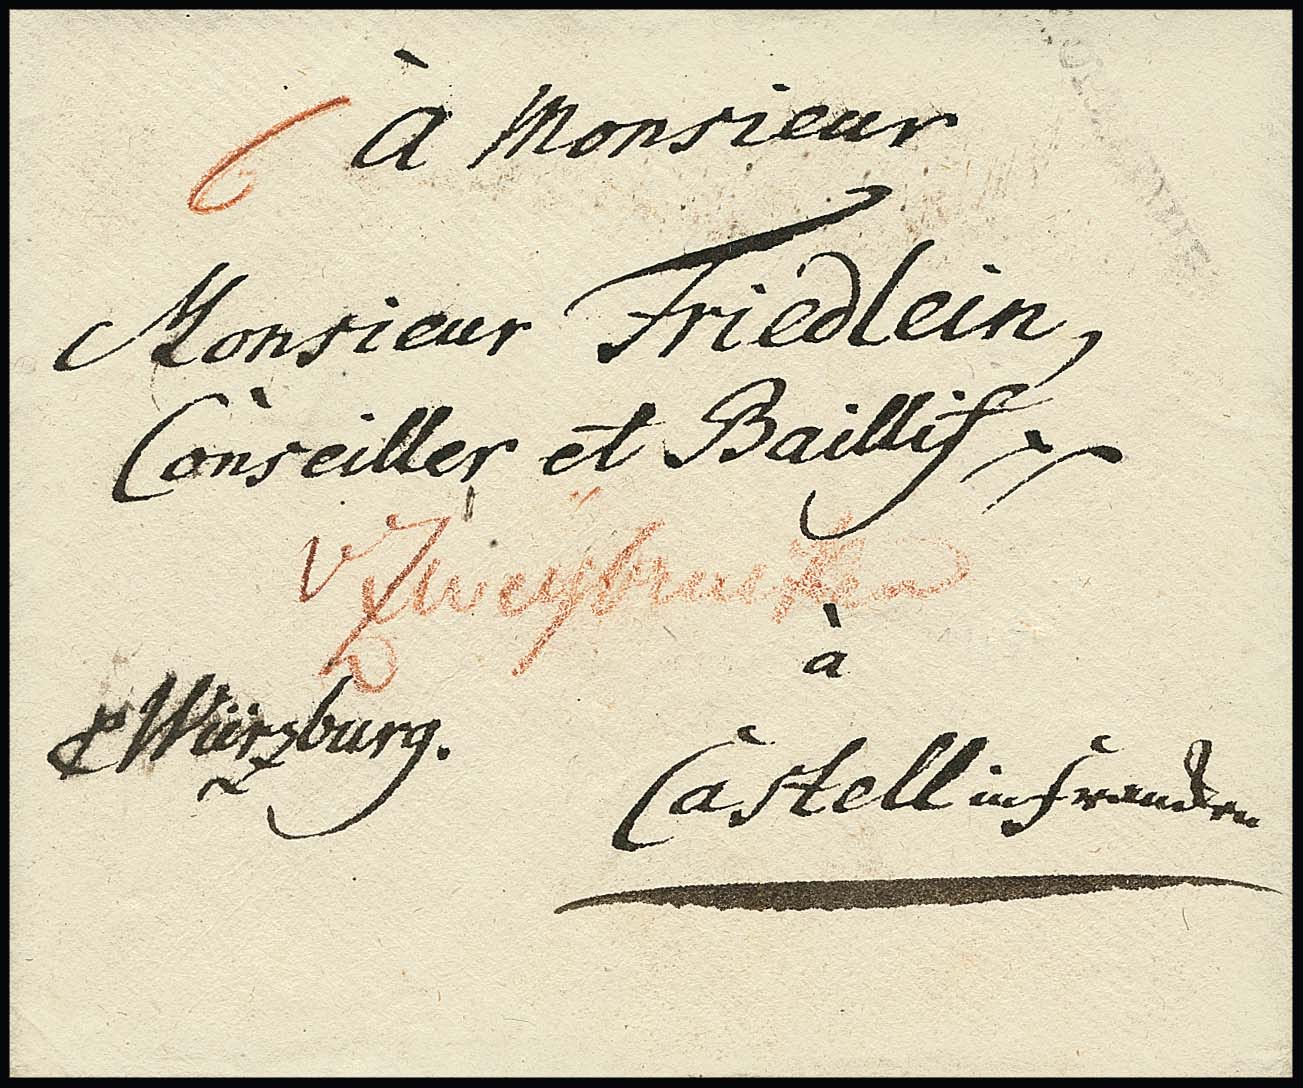 6
à Monsieur
Monsieur Friedlein,
Conseiller et Baillif
v Zweybruecken
à
p Würzburg.
Castell in Francken